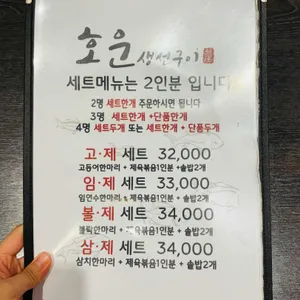 호운 생선구이
세트메뉴는 2인분 입니다
2명 세트한개 주문하시면 됩니다
3명 세트한개 +단품한개
4명 세트두개 또는 세트한개 + 단품두개
고·제 세트 32,000
고등어한마리 + 제육볶음1인분 + 솥밥2개
임·제 세트 33,000
임연수한마리 + 제육볶음1인분 + 솥밥2개
볼·제 세트 34,000
볼락한마리 + 제육볶음1인분 + 솥밥2개
삼·제 세트 34,000
삼치한마리 + 제육볶음1인분 + 솥밥2개